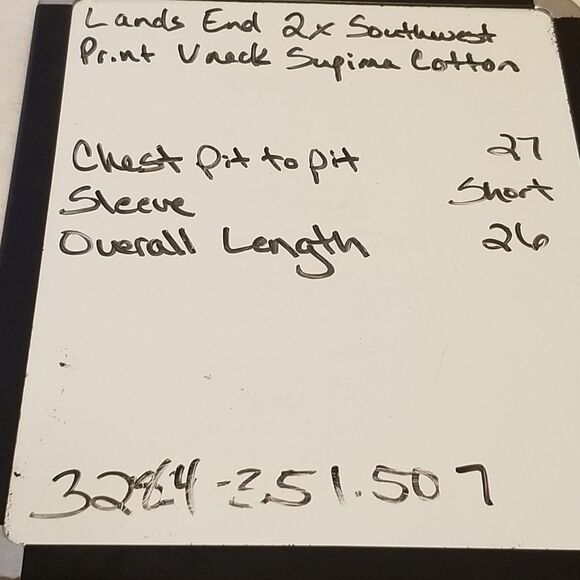 Lands End 2x Southwest
Print Vneck Supima Cotton
Chest pit to pit 27
Sleeve Short
Overall Length 26